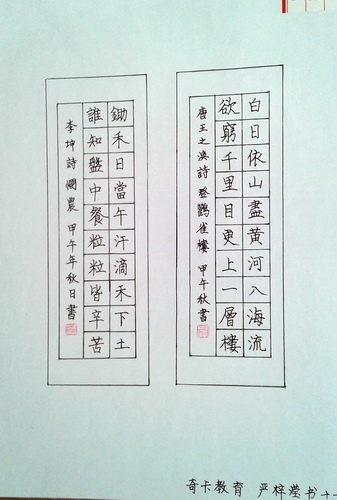 白日依山盡黄河入海流
欲窮千里目更上一層樓
唐王之渙詩 登鸛雀樓 甲午秋書
鋤禾日當午汗滴禾下土
誰知盤中餐粒粒皆辛苦
李坤詩 憫農 甲午年秋日書
奇卡教育 严梓滢书